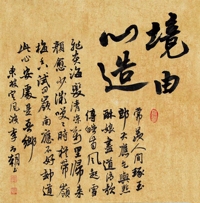 境由
心造
常羡人间琢玉
郎天应乞与点
酥娘尽道清歌
传皓齿风起雪
飞炎海变清凉万里归来
颜愈少微笑笑时犹带岭
梅香试问岭南应不好却道
此心安处是吾乡
东坡定风波